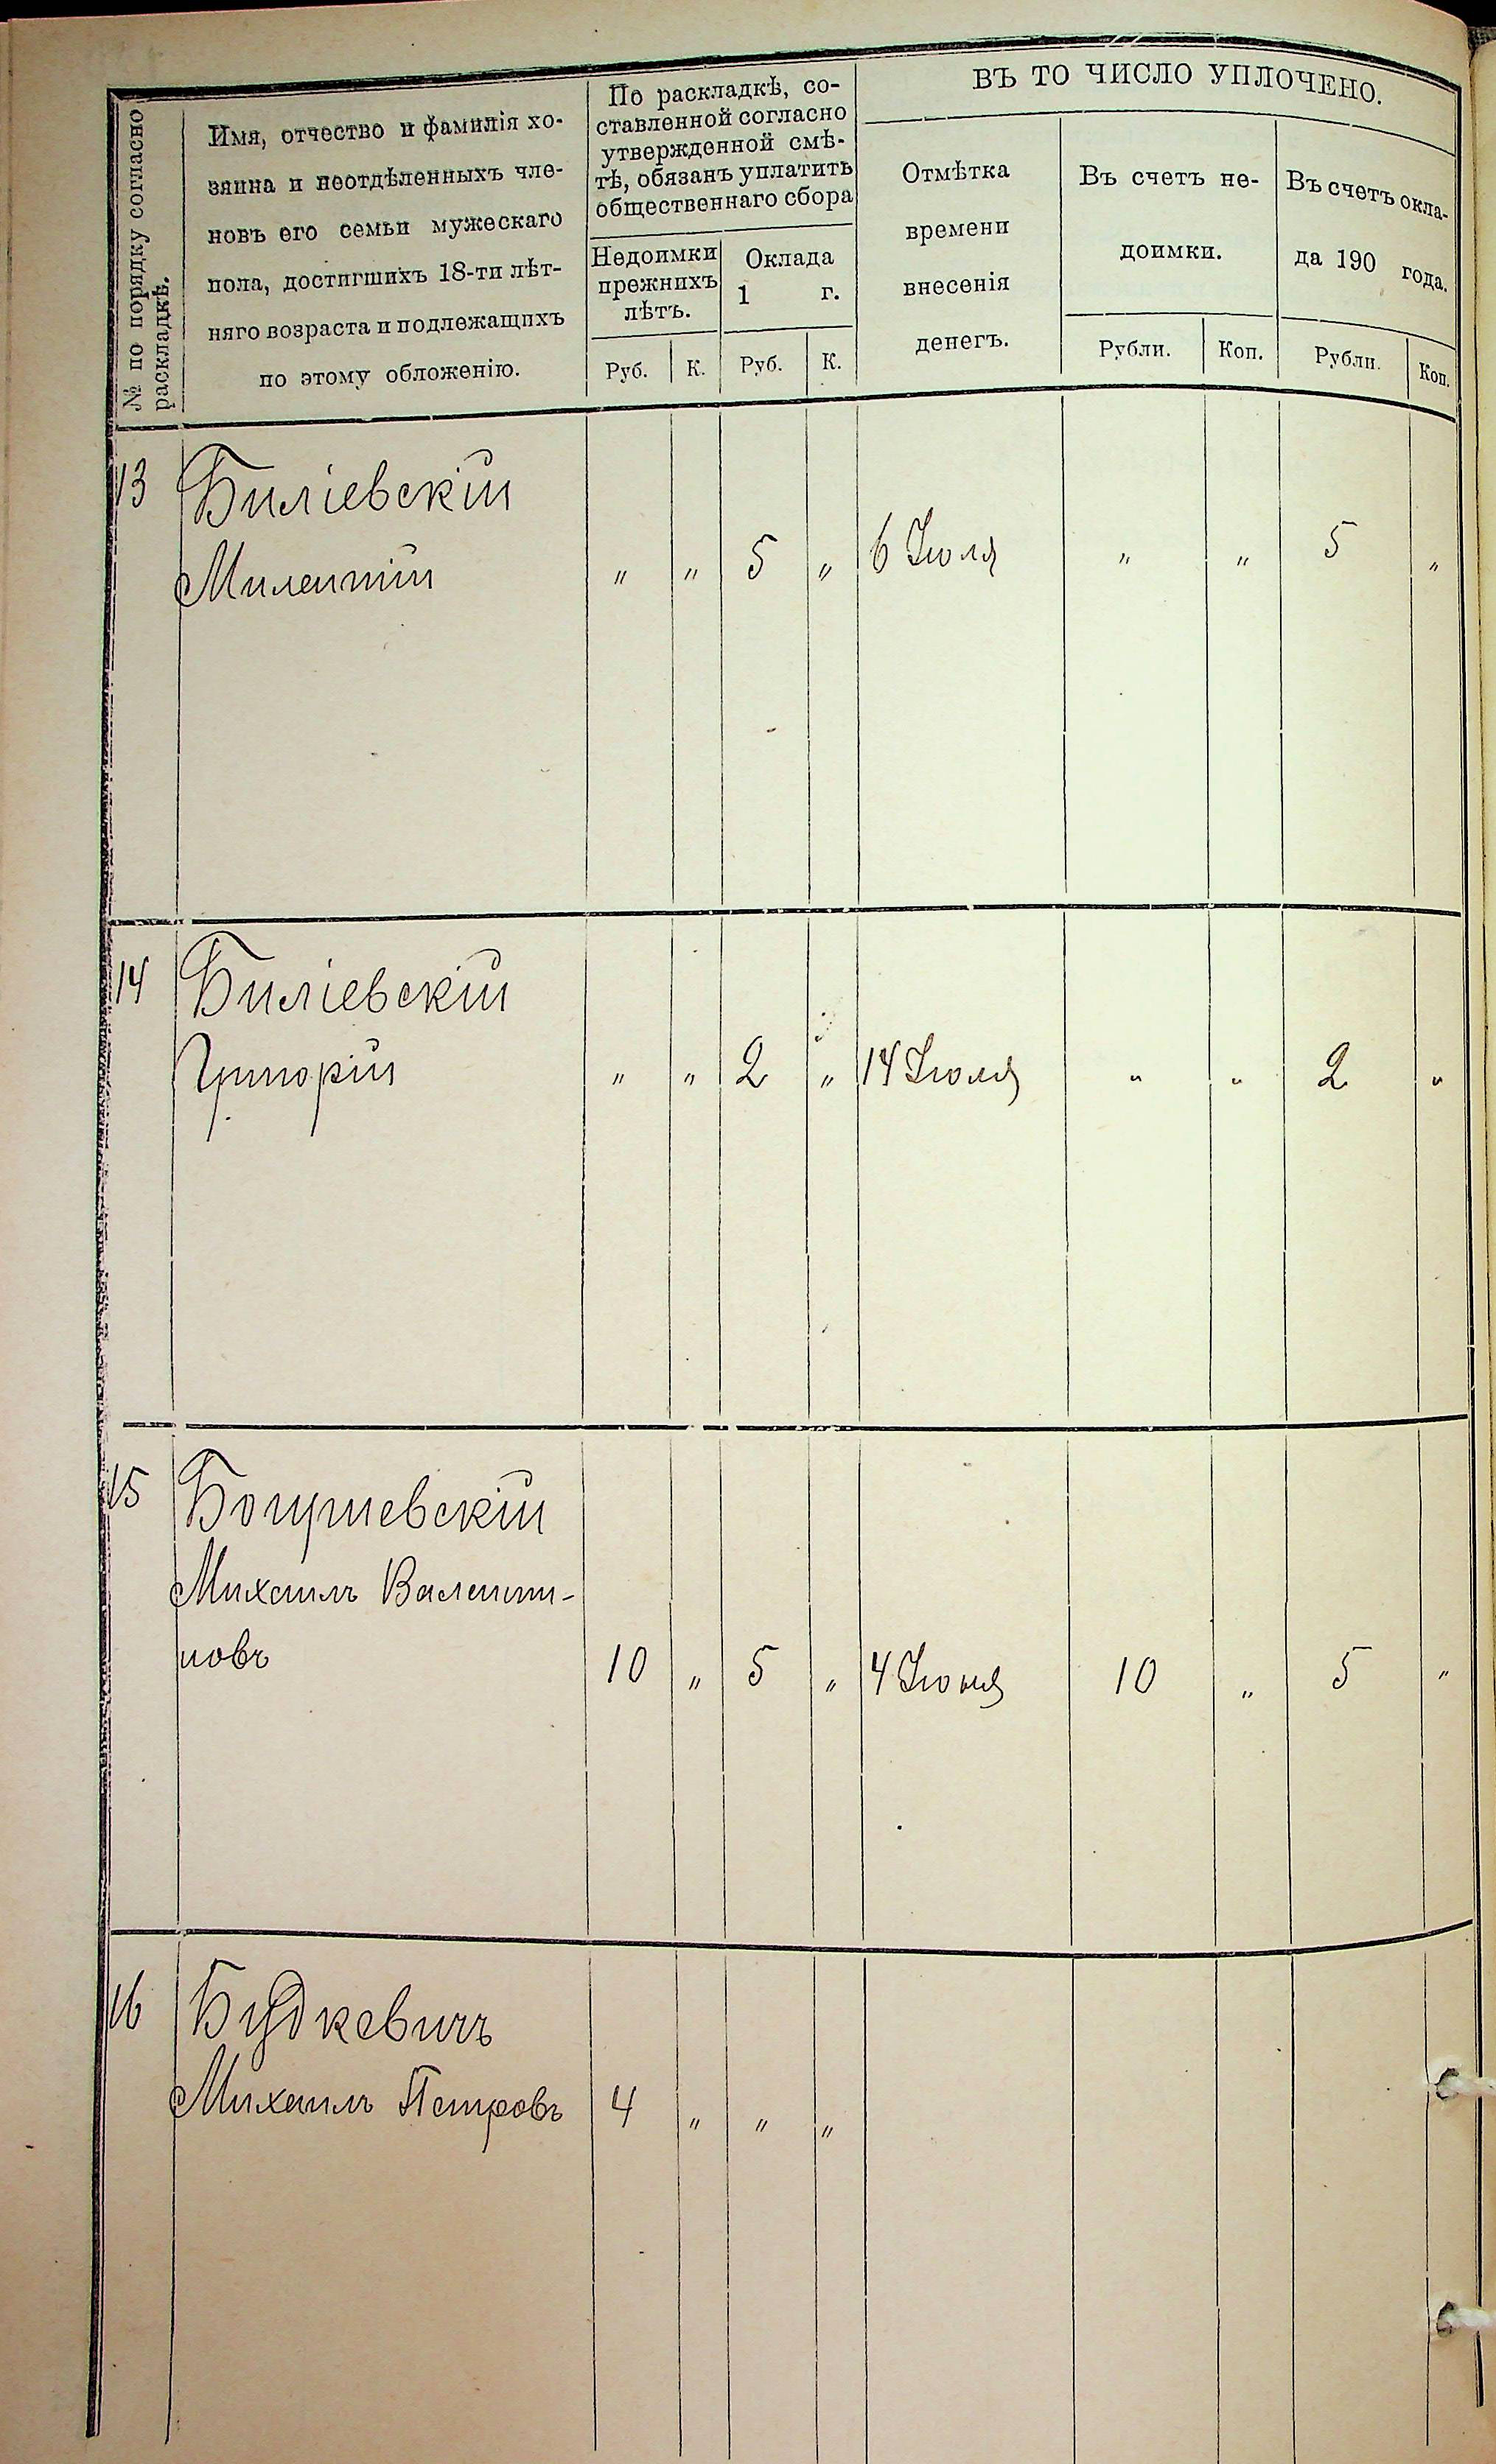 № по порядку согласно
раскладкѣ.
Имя, отчество и фамилія хо-
зяина и неотдѣленныхъ чле-
новъ его семьи мужескаго
пола, достигшихъ 18-ти лѣт-
няго возраста и подлежащихъ
по этому обложенію.
По раскладкѣ, со-
ставленной согласно
утвержденной смѣ-
тѣ, обязанъ уплатить
общественнаго сбора
Недоимки
прежнихъ
лѣтъ.
Оклада
1 г.
Руб. К. Руб. К.
ВЪ ТО ЧИСЛО УПЛОЧЕНО.
Отмѣтка
времени
внесенія
денегъ.
Въ счетъ не-
доимки.
Рубли. Коп.
Въ счетъ окла-
да 190 года.
Рубли. Коп.
13 Биліевскій
Милентій „ „ 5 „ 6 Іюля „ „ 5 „
14 Биліевскій
Григорій „ „ 2 „ 14 Іюля „ „ 2 „
15 Богушевскій
Михаилъ Валенти-
новъ 10 „ 5 „ 4 Іюня 10 „ 5 „
16 Будкевичъ
Михаилъ Петровъ 4 „ „ „